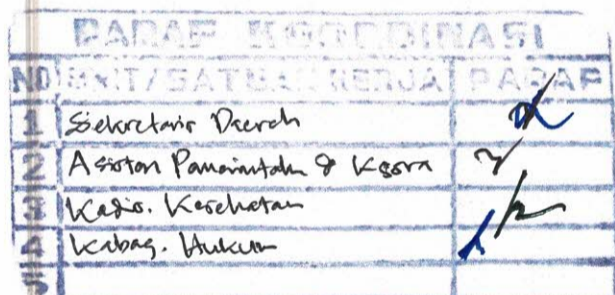 PARAF KOORDINASI
NO UNIT/SATUAN KERJA PARAF
1 Sekretaris Daerah
2 Asisten Pemerintah & Kesra
3 Kadis. Kesehatan
4 Kabag. Hukum
5